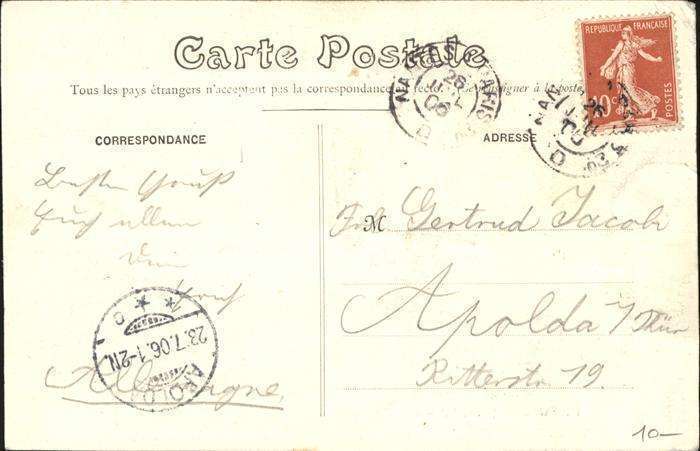 Carte Postale
Tous les pays étrangers n'acceptent pas la correspondance au recto. - Se renseigner à la poste.
RÉPUBLIQUE FRANÇAISE
10 c
POSTES
CORRESPONDANCE
ADRESSE
Besten Gruß
Euch allen
M
Frl. Gertrud Jacob
Apolda i/Thür
Ritterstr 19.
23.7.06.1-2N.
APOLDA
Allemagne
10-